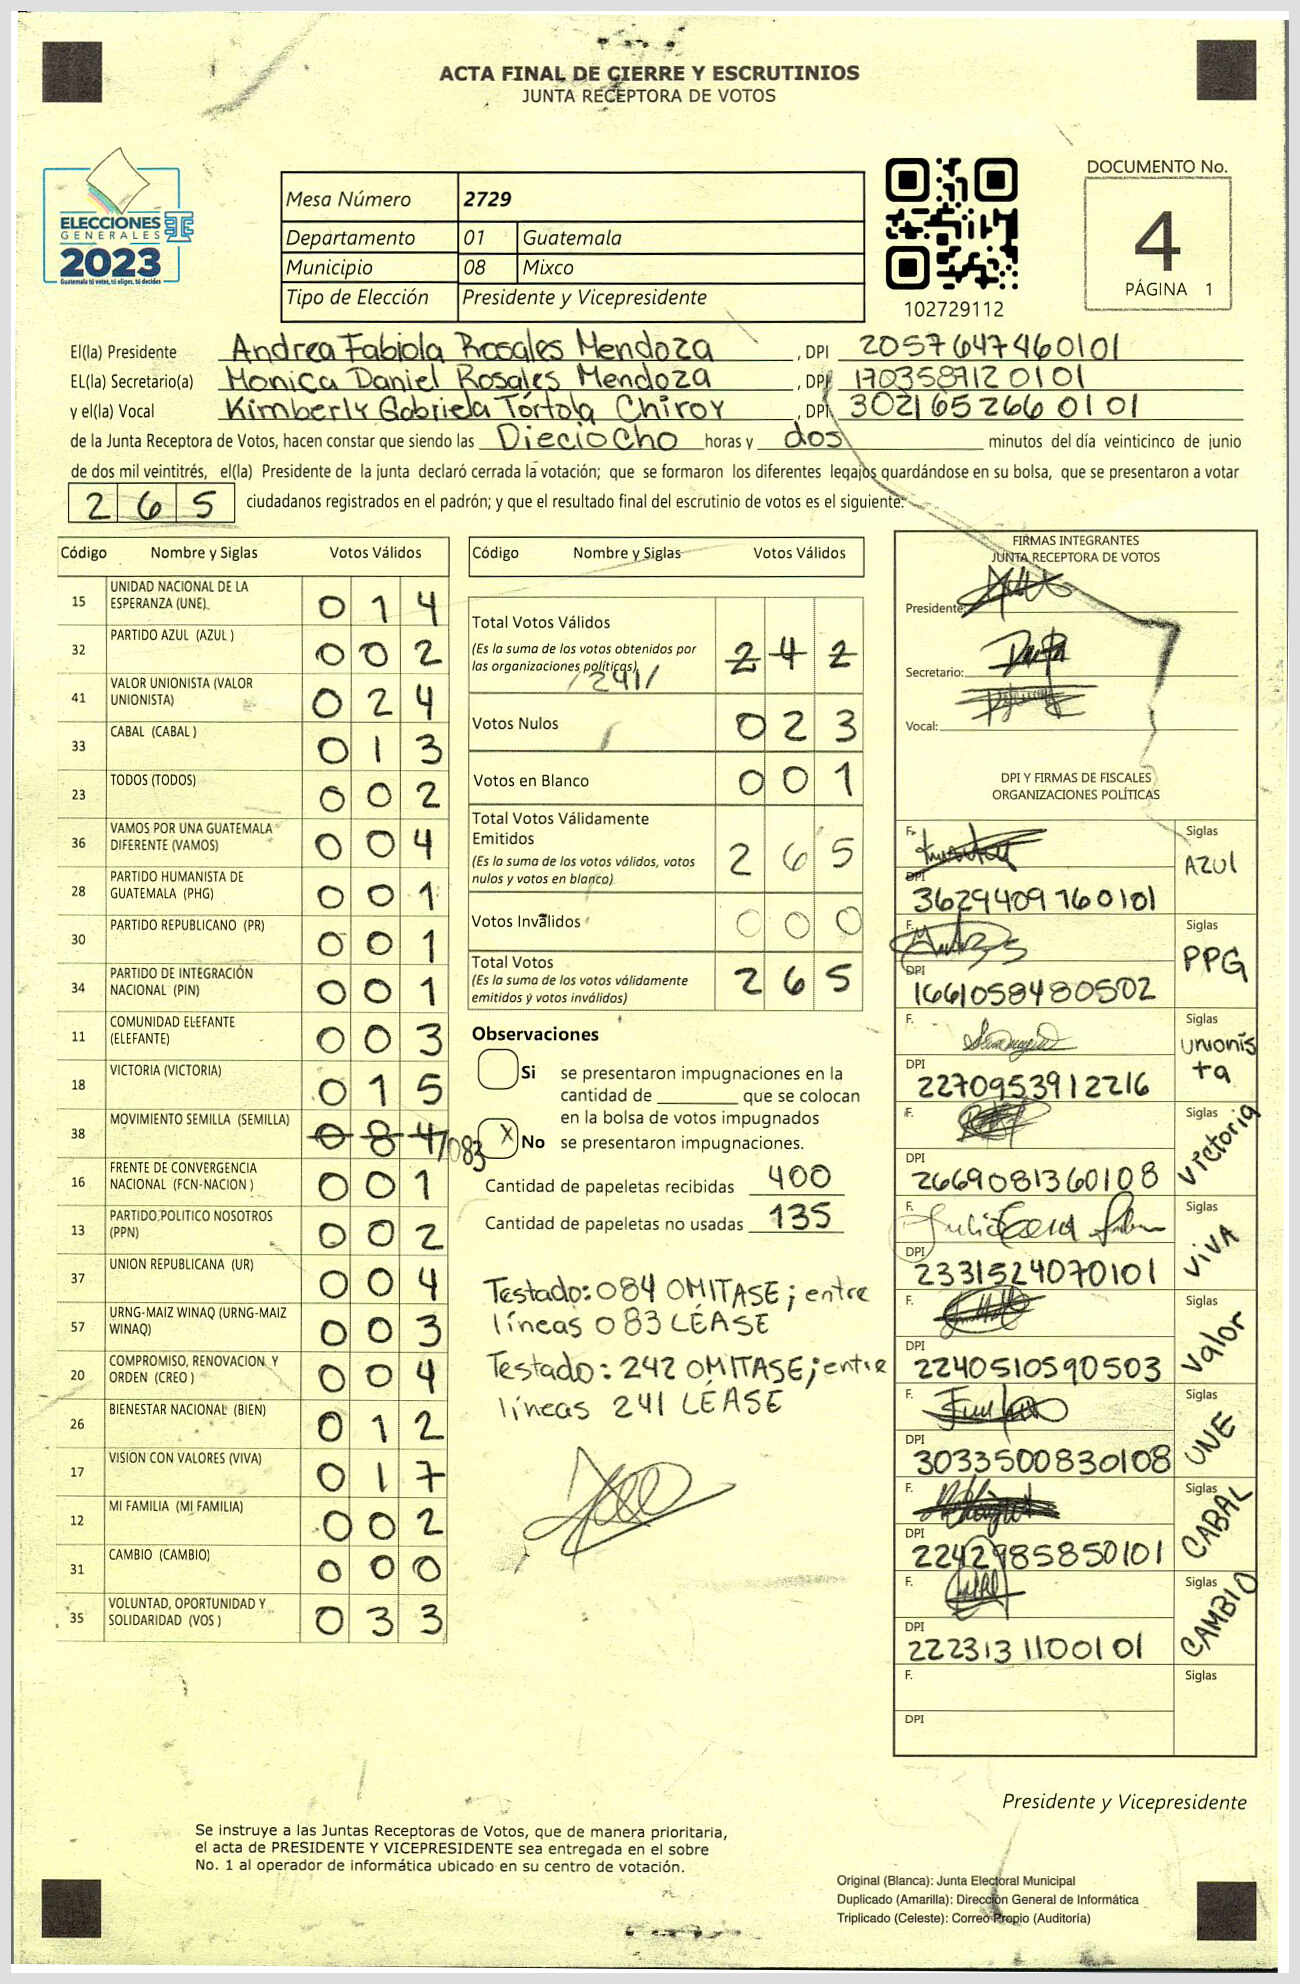 ACTA FINAL DE CIERRE Y ESCRUTINIOS
JUNTA RECEPTORA DE VOTOS
ELECCIONES
GENERALES
2023
Guatemala tú votas, tú eliges, tú decides
Mesa Número 2729
Departamento 01 Guatemala
Municipio 08 Mixco
Tipo de Elección Presidente y Vicepresidente
102729112
DOCUMENTO No.
4
PÁGINA 1
El(la) Presidente Andrea Fabiola Rosales Mendoza, DPI 2057647460101
EL(la) Secretario(a) Monica Daniel Rosales Mendoza, DPI 1703587120101
y el(la) Vocal Kimberly Gabriela Tórtola Chiroy, DPI 3021652660101
de la Junta Receptora de Votos, hacen constar que siendo las Dieciocho horas y dos minutos del día veinticinco de junio
de dos mil veintitrés, el(la) Presidente de la junta declaró cerrada la votación; que se formaron los diferentes legajos guardándose en su bolsa, que se presentaron a votar
265 ciudadanos registrados en el padrón; y que el resultado final del escrutinio de votos es el siguiente:
Código Nombre y Siglas Votos Válidos
15 UNIDAD NACIONAL DE LA ESPERANZA (UNE) 014
32 PARTIDO AZUL (AZUL ) 002
41 VALOR UNIONISTA (VALOR UNIONISTA) 024
33 CABAL (CABAL ) 013
23 TODOS (TODOS) 002
36 VAMOS POR UNA GUATEMALA DIFERENTE (VAMOS) 004
28 PARTIDO HUMANISTA DE GUATEMALA (PHG) 001
30 PARTIDO REPUBLICANO (PR) 001
34 PARTIDO DE INTEGRACIÓN NACIONAL (PIN) 001
11 COMUNIDAD ELEFANTE (ELEFANTE) 003
18 VICTORIA (VICTORIA) 015
38 MOVIMIENTO SEMILLA (SEMILLA) 084 /083
16 FRENTE DE CONVERGENCIA NACIONAL (FCN-NACION ) 001
13 PARTIDO POLITICO NOSOTROS (PPN) 002
37 UNION REPUBLICANA (UR) 004
57 URNG-MAIZ WINAQ (URNG-MAIZ WINAQ) 003
20 COMPROMISO, RENOVACION Y ORDEN (CREO ) 004
26 BIENESTAR NACIONAL (BIEN) 012
17 VISION CON VALORES (VIVA) 017
12 MI FAMILIA (MI FAMILIA) 002
31 CAMBIO (CAMBIO) 000
35 VOLUNTAD, OPORTUNIDAD Y SOLIDARIDAD (VOS ) 033
Código Nombre y Siglas Votos Válidos
Total Votos Válidos 242
(Es la suma de los votos obtenidos por
las organizaciones políticas)
/241/
Votos Nulos 023
Votos en Blanco 001
Total Votos Válidamente
Emitidos 265
(Es la suma de los votos válidos, votos
nulos y votos en blanco)
Votos Inválidos 000
Total Votos 265
(Es la suma de los votos válidamente
emitidos y votos inválidos)
Observaciones
Si se presentaron impugnaciones en la
cantidad de ________ que se colocan
en la bolsa de votos impugnados
X No se presentaron impugnaciones.
Cantidad de papeletas recibidas 400
Cantidad de papeletas no usadas 135
Testado: 084 OMITASE; entre
líneas 083 LÉASE
Testado: 242 OMITASE; entre
líneas 241 LÉASE
FIRMAS INTEGRANTES
JUNTA RECEPTORA DE VOTOS
Presidente:
Secretario:
Vocal:
DPI Y FIRMAS DE FISCALES
ORGANIZACIONES POLÍTICAS
F. Siglas AZUL
DPI 3629409760101
F. Siglas PPG
DPI 1661058480502
F. Siglas Unionista
DPI 2270953912216
F. Siglas Victoria
DPI 2669081360108
F. Siglas VIVA
DPI 2331524070101
F. Siglas Valor
DPI 2240510590503
F. Siglas UNE
DPI 3033500830108
F. Siglas CABAL
DPI 2242985850101
F. Siglas CAMBIO
DPI 2223131100101
F. Siglas
DPI
Presidente y Vicepresidente
Se instruye a las Juntas Receptoras de Votos, que de manera prioritaria,
el acta de PRESIDENTE Y VICEPRESIDENTE sea entregada en el sobre
No. 1 al operador de informática ubicado en su centro de votación.
Original (Blanca): Junta Electoral Municipal
Duplicado (Amarilla): Dirección General de Informática
Triplicado (Celeste): Correo Propio (Auditoría)